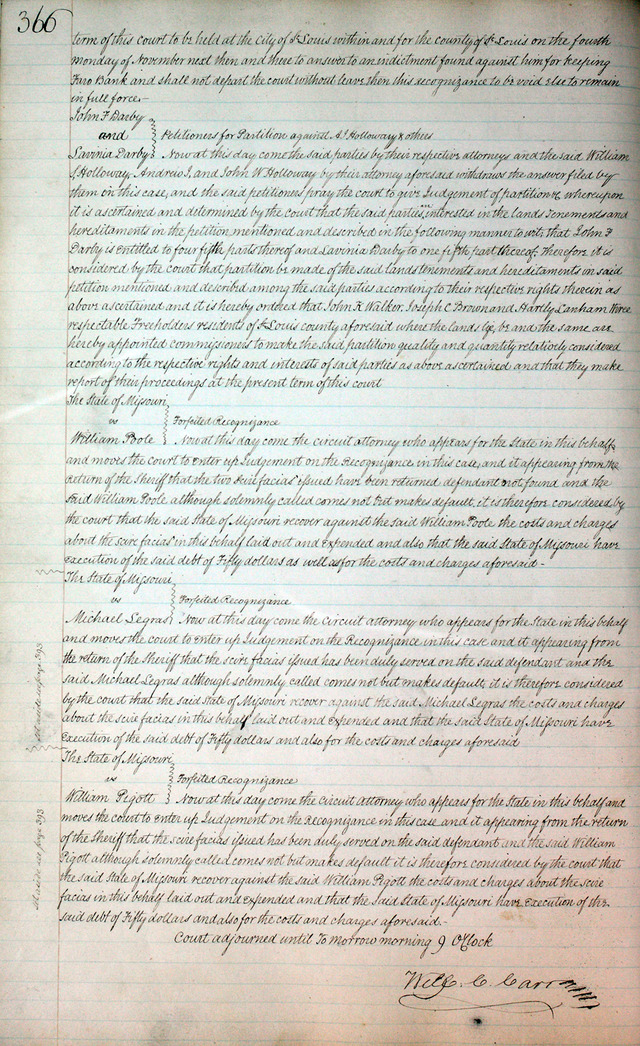 366
term of this court to be held at the City of St Louis within and for the county of St Louis on the fourth
monday of November next then and there to answer to an indictment found against him for keeping
Faro Bank and shall not depart the court without leave then this recognizance to be void else to remain
in full force
John F Darby
and Petitioners for Partition against S. J Holloway & others
Lavinia Darby Now at this day come the said parties by their respective attorneys and the said William
S. Holloway, Andrew J, and John W Holloway by their attorney aforesaid withdraws the answer filed by
them in this case, and the said petitioners pray the court to give Judgement of partition &c whereupon
it is ascertained and determined by the court that the said parties interested in the lands tenements and
hereditaments in the petition mentioned and described in the following manner to wit; that John F
Darby is entitled to four fifth parts thereof and Lavinia Darby to one fifth part thereof; Therefore it is
considered by the court that partition be made of the said lands tenements and hereditaments in said
petition mentioned and described among the said parties according to their respective rights therein as
above ascertained and it is hereby ordered that John K Walker, Joseph C Brown and Hartly Lanham three
respectable Freeholders residents of St Louis county aforesaid where the lands &c, be and the same are
hereby appointed commissioners to make the said partition quality and quantity relatively considered
according to the respective rights and interests of said parties as above ascertained and that they make
report of their proceedings at the present term of this court
The State of Missouri
vs Forfeited Recognizance
William Poole Now at this day come the circuit attorney who appears for the State in this behalf
and moves the court to enter up Judgement on the Recognizance in this case, and it appearing from the
return of the Sheriff that the two scire facias' issued have been returned defendant not found and the
said William Poole although solemnly called comes not but makes default, it is therefore considered by
the court that the said State of Missouri recover against the said William Poole the costs and charges
about the scire facias in this behalf laid out and expended and also that the said State of Missouri have
execution of the said debt of Fifty dollars as well as for the costs and charges aforesaid -
The State of Missouri
vs Forfeited Recognizance
Michael Legras Now at this day come the Circuit attorney who appears for the State in this behalf
and moves the court to enter up Judgement on the Recognizance in this case and it appearing from
the return of the Sheriff that the scire facias issued has been duly served on the said defendant and the
said Michael Legras although solemnly called comes not but makes default; it is therefore considered
by the court that the said State of Missouri recover against the said Michael Legras the costs and charges
about the scire facias in this behalf laid out and expended and that the said State of Missouri have
execution of the said debt of Fifty dollars and also for the costs and charges aforesaid
The State of Missouri
vs Forfeited Recognizance
William Pigott Now at this day come the Circuit attorney who appears for the State in this behalf and
moves the court to enter up Judgement on the Recognizance in this case and it appearing from the return
of the Sheriff that the scire facias issued has been duly served on the said defendant and the said William
Pigott although solemnly called comes not but makes default it is therefore considered by the court that
the said State of Missouri recover against the said William Pigott the costs and charges about the scire
facias in this behalf laid out and expended and that the said State of Missouri have execution of the
said debt of Fifty dollars and also for the costs and charges aforesaid -
Court adjourned until To morrow morning 9 O'Clock
Will. C. Carr
set aside see page 393
set aside see page 393